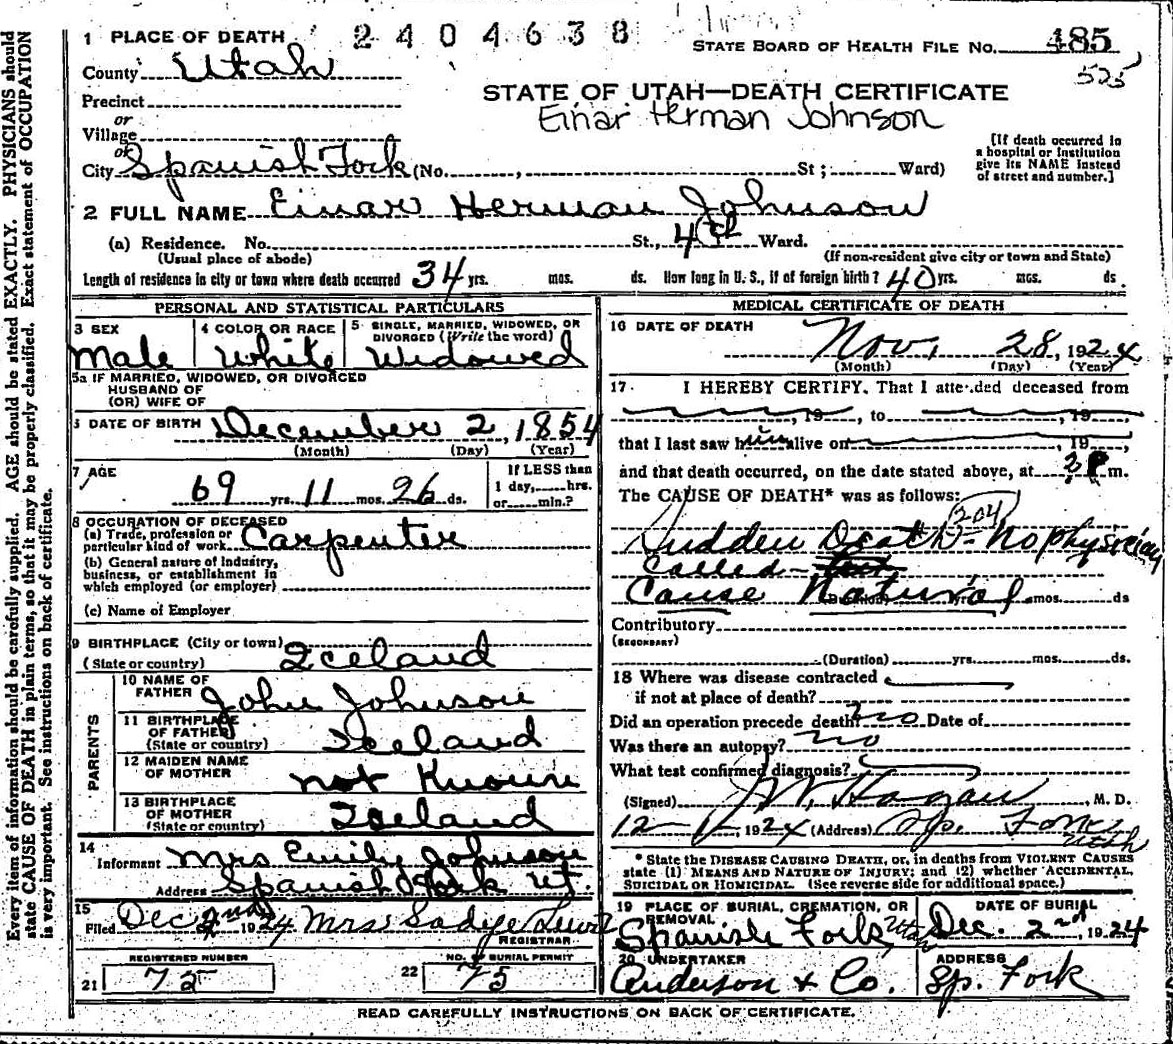 2404638
1 PLACE OF DEATH
STATE BOARD OF HEALTH FILE NO. 485
525
County Utah
STATE OF UTAH—DEATH CERTIFICATE
Einar Herman Johnson
Precinct
or
Village
or
City Spanish Fork (No. , St ; Ward)
[If death occurred in
a hospital or institution
give its NAME instead
of street and number.]
2 FULL NAME Einar Herman Johnson
(a) Residence. No. St., 4th Ward.
(Usual place of abode) (If non-resident give city or town and State)
Length of residence in city or town where death occurred 34 yrs. mos. ds. How long in U. S., if of foreign birth? 40 yrs. mos. ds.
PERSONAL AND STATISTICAL PARTICULARS
3 SEX
Male
4 COLOR OR RACE
White
5 SINGLE, MARRIED, WIDOWED, OR
DIVORCED (Write the word)
Widowed
5a IF MARRIED, WIDOWED, OR DIVORCED
HUSBAND OF
(OR) WIFE OF
DATE OF BIRTH December 2, 1854
(Month) (Day) (Year)
7 AGE
69 yrs. 11 mos. 26 ds.
If LESS than
1 day, hrs.
or min.?
8 OCCUPATION OF DECEASED
(a) Trade, profession or
particular kind of work Carpenter
(b) General nature of industry,
business, or establishment in
which employed (or employer)
(c) Name of Employer
9 BIRTHPLACE (City or town)
(State or country) Iceland
PARENTS
10 NAME OF
FATHER John Johnson
11 BIRTHPLACE
OF FATHER
(State or country) Iceland
12 MAIDEN NAME
OF MOTHER not Known
13 BIRTHPLACE
OF MOTHER
(State or country) Iceland
14
Informant Mrs Emily Johnson
Address Spanish Fork Ut.
15
Filed Dec 2nd 1924 Mrs Sadye Lewis
REGISTRAR
REGISTERED NUMBER
21 75
NO. OF BURIAL PERMIT
22 75
MEDICAL CERTIFICATE OF DEATH
16 DATE OF DEATH
Nov. 28, 1924
(Month) (Day) (Year)
17 I HEREBY CERTIFY, That I attended deceased from
, 19 , to , 19
that I last saw him alive on , 19 ,
and that death occurred, on the date stated above, at 2 P m.
The CAUSE OF DEATH* was as follows:
204
Sudden Death - No physician
called -
Cause Natural
(Duration) yrs. mos. ds
Contributory
(SECONDARY)
(Duration) yrs. mos. ds.
18 Where was disease contracted
if not at place of death?
Did an operation precede death? no Date of
Was there an autopsy? no
What test confirmed diagnosis?
(Signed) Hagan, M. D.
12-1-, 1924 (Address) Sp. Fork
Utah
* State the DISEASE CAUSING DEATH, or, in deaths from VIOLENT CAUSES
state (1) MEANS AND NATURE OF INJURY; and (2) whether ACCIDENTAL,
SUICIDAL OR HOMICIDAL. (See reverse side for additional space.)
19 PLACE OF BURIAL, CREMATION, OR
REMOVAL
Spanish Fork, Utah
DATE OF BURIAL
Dec. 2nd, 1924
20 UNDERTAKER
Anderson & Co.
ADDRESS
Sp. Fork
READ CAREFULLY INSTRUCTIONS ON BACK OF CERTIFICATE.
Every item of information should be carefully supplied. AGE should be stated EXACTLY. PHYSICIANS should
state CAUSE OF DEATH in plain terms, so that it may be properly classified. Exact statement of OCCUPATION
is very important. See instructions on back of certificate.